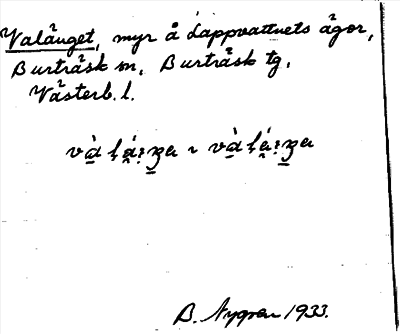 Valånget, myr å Lappvattnets ägor,
Burträsk sn, Burträsk tg,
Västerb. l.
B. Nygren 1933.